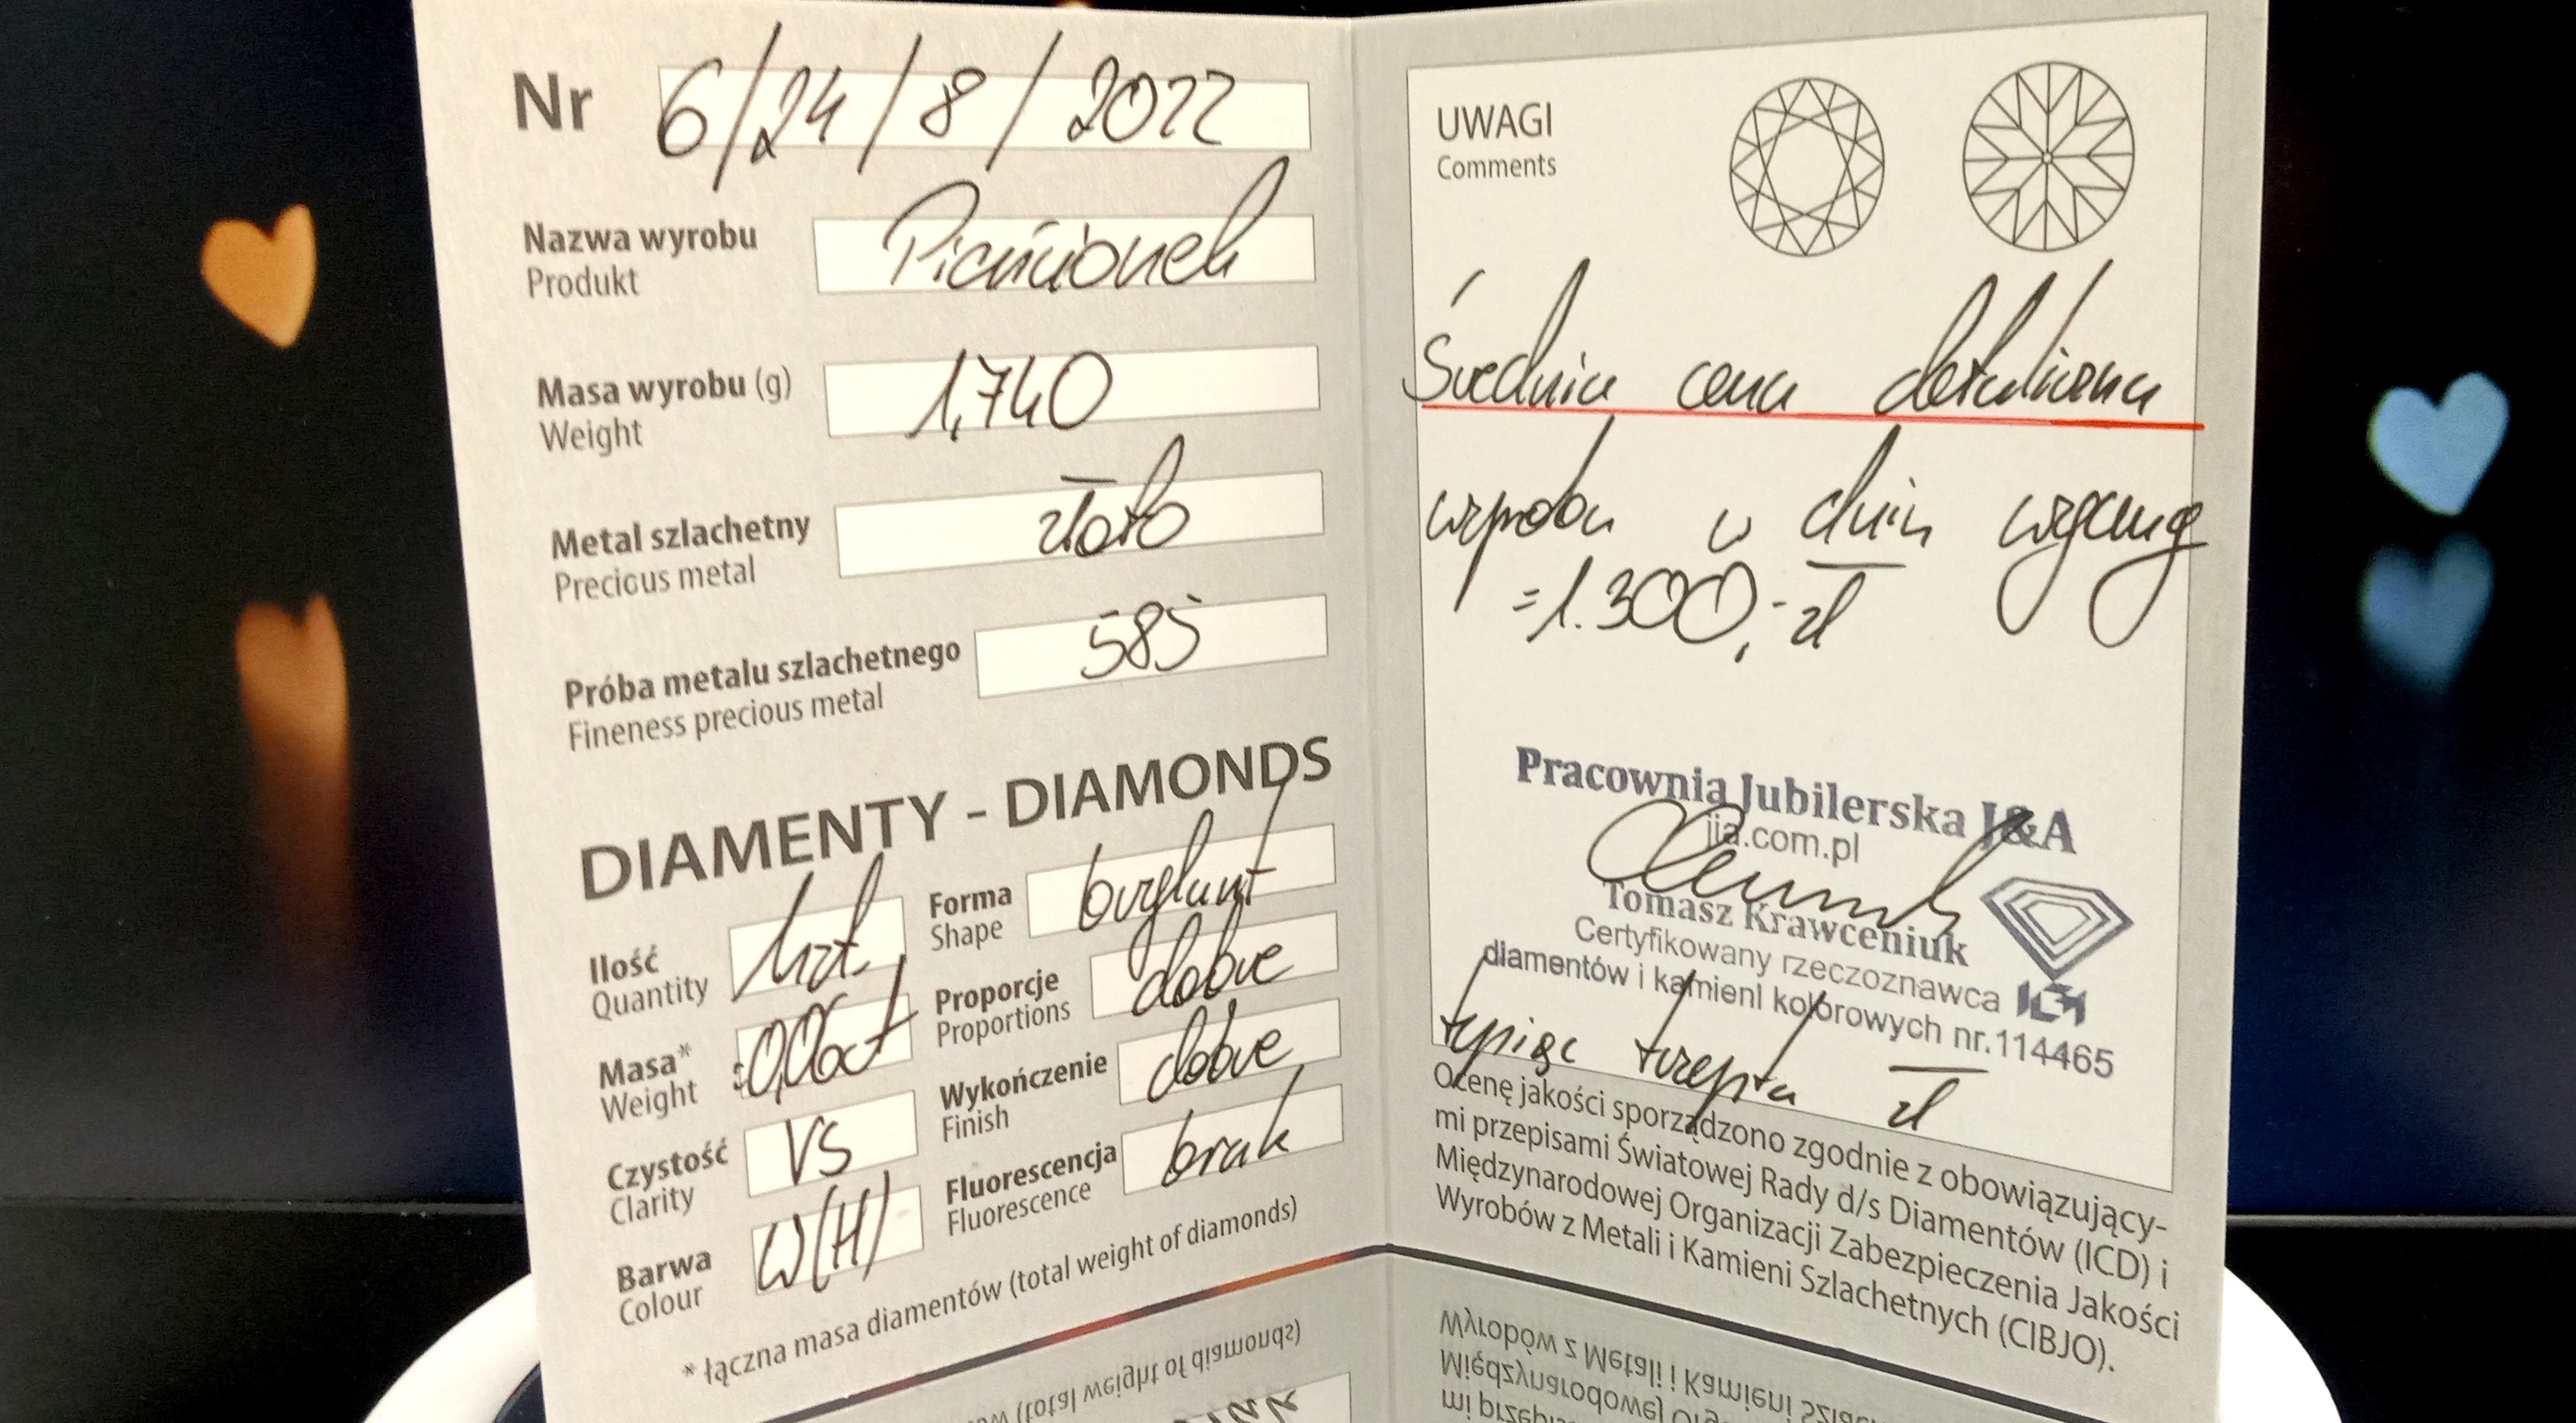 Nr 6/24/8/2022
Nazwa wyrobu Pierścionek
Produkt
Masa wyrobu (g) 1,740
Weight
Metal szlachetny złoto
Precious metal
Próba metalu szlachetnego 585
Fineness precious metal
DIAMENTY - DIAMONDS
Ilość 1szt.
Quantity
Masa* 0,06ct
Weight
Czystość VS
Clarity
Barwa W(H)
Colour
Forma brylant
Shape
Proporcje dobre
Proportions
Wykończenie dobre
Finish
Fluorescencja brak
Fluorescence
* łączna masa diamentów (total weight of diamonds)
UWAGI
Comments
Średnia cena detaliczna
wyrobu w dniu wyceny
=1.300,- zł
Pracownia Jubilerska J&A
jia.com.pl
Tomasz Krawceniuk
Certyfikowany rzeczoznawca
diamentów i kamieni kolorowych nr.114465
tysiąc trzysta zł
Ocenę jakości sporządzono zgodnie z obowiązujący-
mi przepisami Światowej Rady d/s Diamentów (ICD) i
Międzynarodowej Organizacji Zabezpieczenia Jakości
Wyrobów z Metali i Kamieni Szlachetnych (CIBJO).